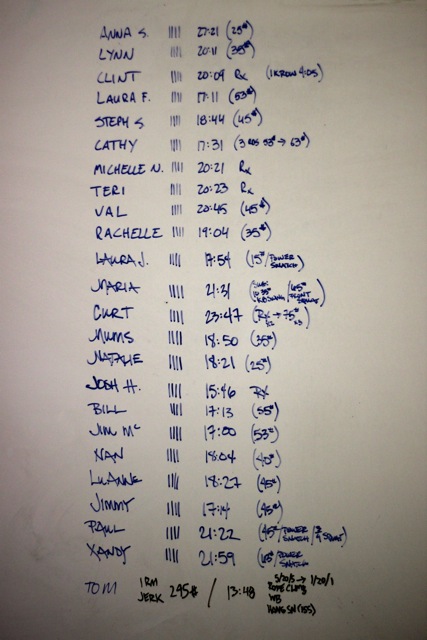 ANNA S. |||| 27:21 (25#)
LYNN |||| 20:11 (35#)
CLINT |||| 20:09 Rx (1K ROW 4:05)
LAURA F. |||| 17:11 (53#)
STEPH S |||| 18:44 (45#)
CATHY |||| 17:31 (3 RDS 53# → 63#)
MICHELLE N. |||| 20:21 Rx
TERI |||| 20:23 Rx
VAL |||| 20:45 (45#)
RACHELLE |||| 19:04 (35#)
LAURA J. |||| 17:54 (15#/POWER SNATCH)
MARIA |||| 21:31
CURT |||| 23:47 (Rx → 75#)
MUMS |||| 18:50 (35#)
NATALIE |||| 18:21 (25#)
JOSH H. |||| 15:46 RX
BILL |||| 17:13 (55#)
JIM Mc |||| 17:00 (53#)
NAN |||| 18:04 (40#)
LUANNE |||| 18:27 (45#)
JIMMY |||| 17:14 (95#)
PAUL |||| 21:22 (45#/POWER SNATCH/
XANDY |||| 21:59 (65#/POWER SNATCH)
TOM 1RM JERK 295# / 13:48 5/20/5 → 1/20/1
ROPE CLIMB
WB
HANG SN (155)